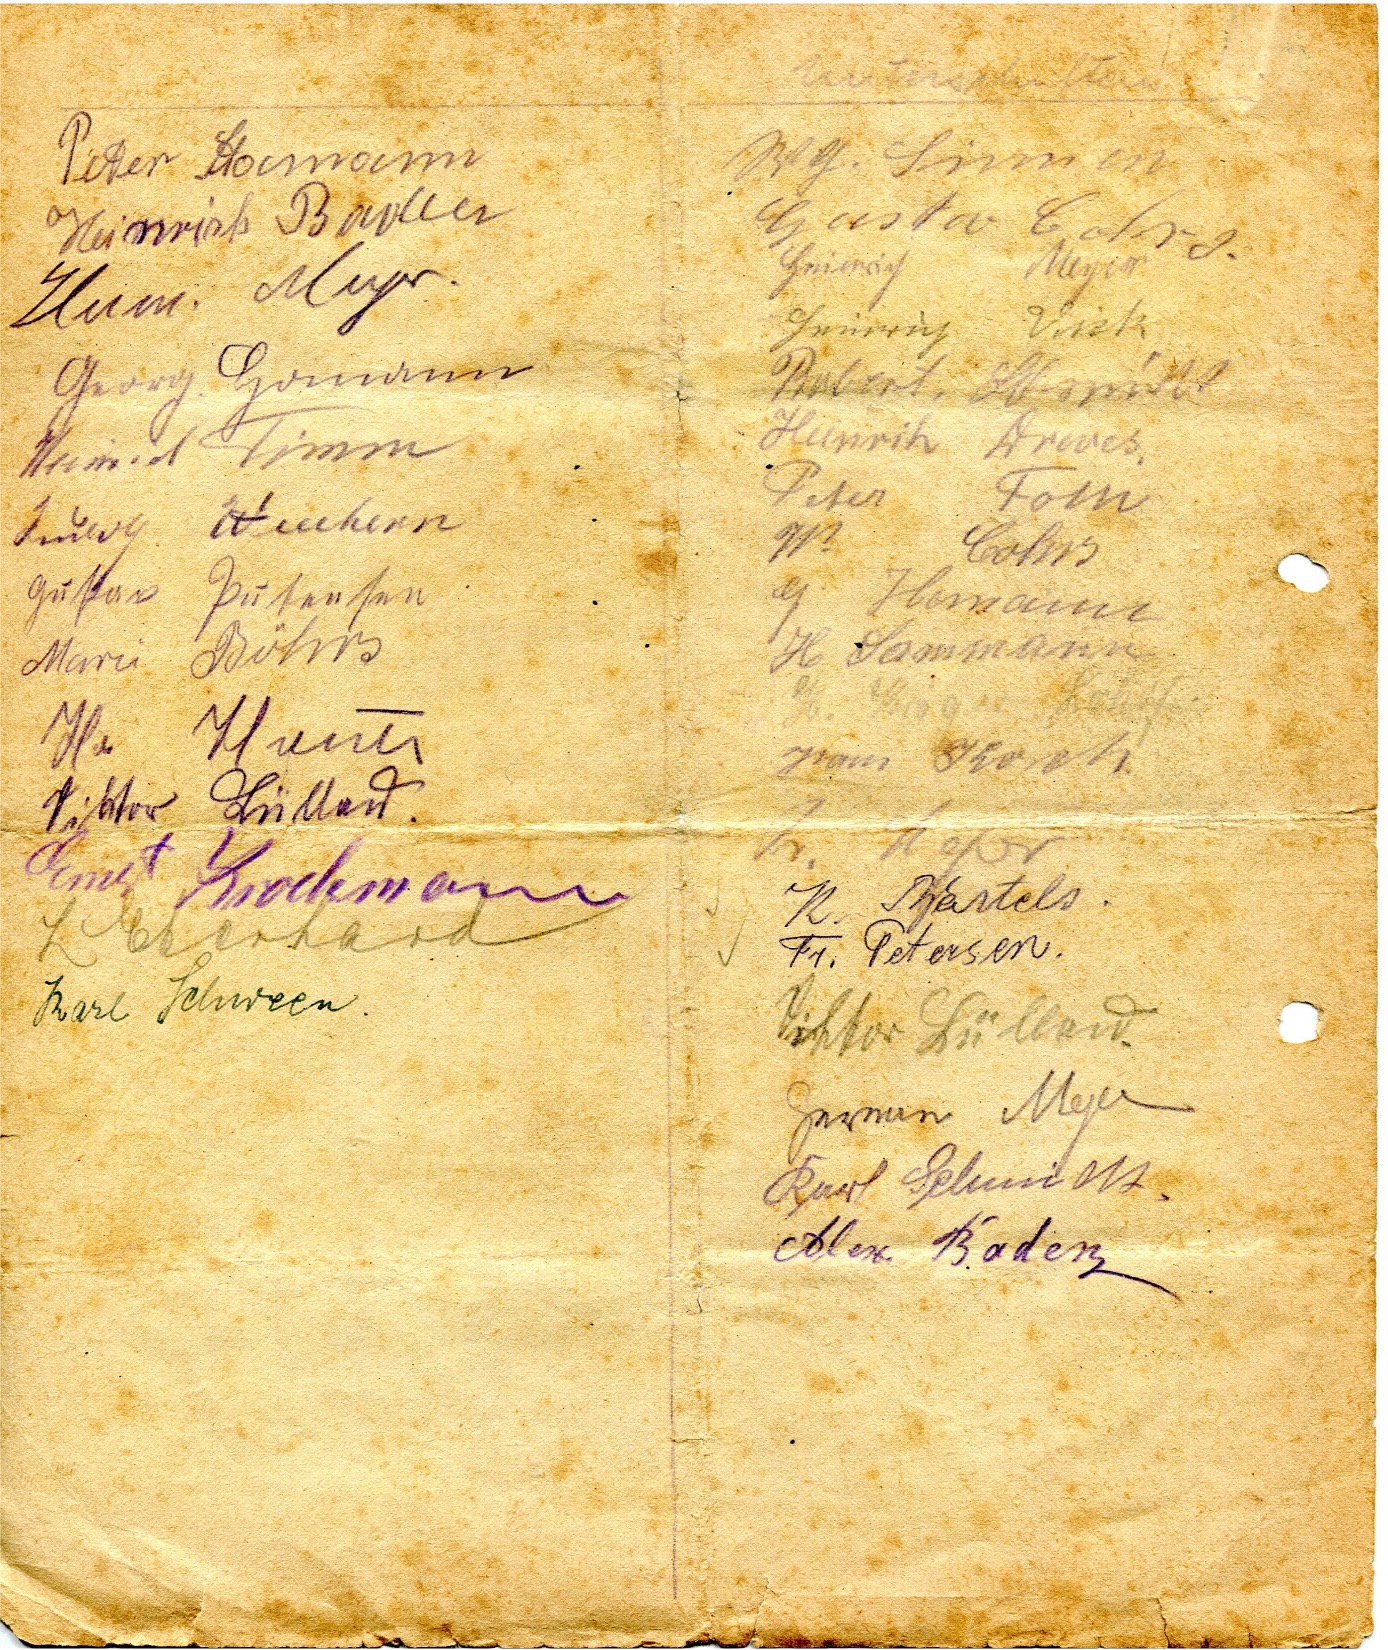 Unterschriften
Peter Homann
Heinrich Badler
Herm. Meyer.
Georg Homann
Heinrich Timm
Ludwig
Gustav Putensen
Marie Böhrs
Viktor Lülland.
Ernst Brockmann
L Eberhard
Karl Schween.
Wg.
Gustav Cohrs.
Heinrich Meyer
Heinrich Vick
Robert. Schmidt
Heinrich Drewes.
Peter Foth
W Cohrs
G Homann
H Sammann
Hans Koch
K. Bartels.
Fr. Petersen.
Viktor Lülland.
Herman Meyer
Karl Schmidt.
Alex. Baden